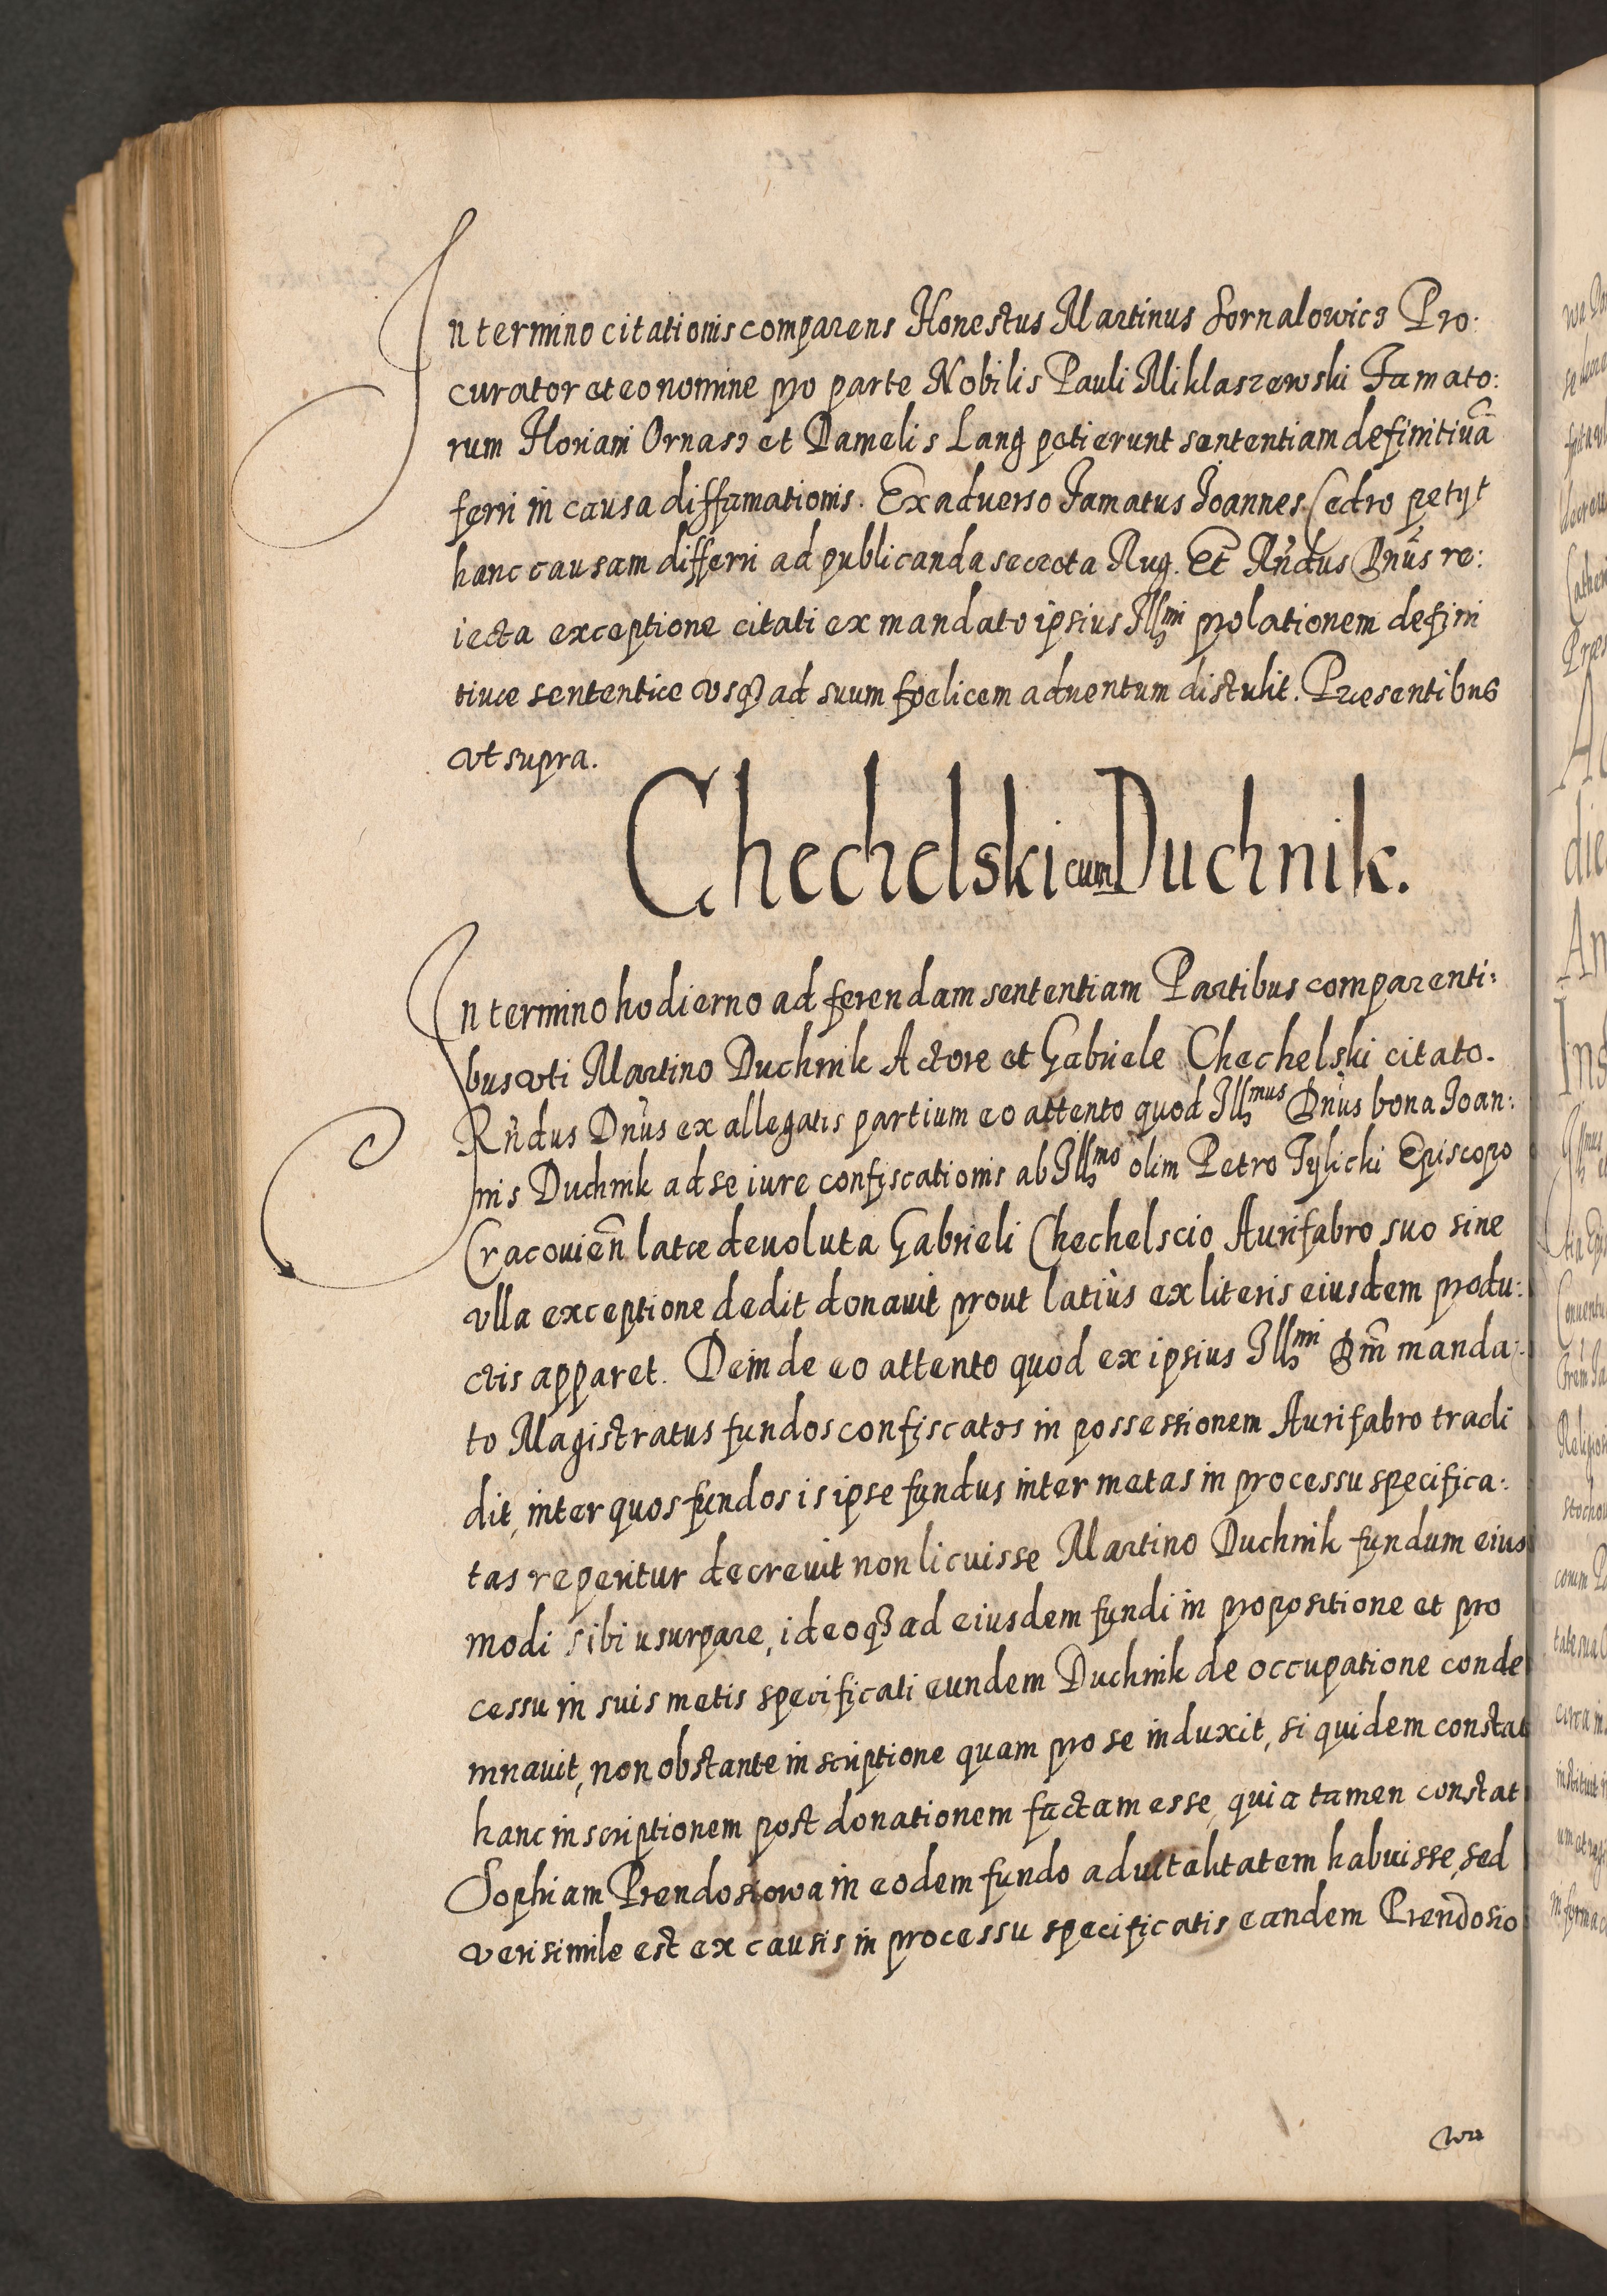 In termino citationis comparens Honestus Martinus Fornalowicz Pro:
curator et eo nomine pro parte Nobilis Pauli Miklaszewski Famato:
rum Floriani Ornasz et Danielis Lang petierunt sententiam definitiuã
ferri in causa diffamationis. Ex aduerso Famatus Joannes Cedro petyt
hanc causam differri ad publicanda Aug. Et Rñdus Dnus re:
iecta exceptione citati ex mandato ipsius Illmi prolationem defini
tiuæ sententiæ vsq3 ad suum foelicem aduentum distulit. Præsentibus
vt supra.
Chechelski cum Duchnik.
In termino hodierno ad ferendam sententiam Partibus comparenti:
bus vti Martino Duchnik Actore et Gabriele Chechelski citato.
Rñdus Dñus ex allegatis partium eo attento quod Illmus Dñus bona Ioan:
nis Duchnik ad se iure confiscationis ab Illmo olim Petro Tylicki Episcopo
Cracouieñ latæ deuoluta Gabrieli Chechelscio Aurifabro suo sine
vlla exceptione dedit donauit prout latiùs ex literis eiusdem produ:
ctis apparet. Deinde eo attento quod ex ipsius Illmi Dni manda:
to Magistratus fundos confiscatos in possessionem Aurifabro tradi
dit, inter quos fundos is ipse fundus inter metas in processu specifica:
tas reperitur decreuit non licuisse Martino Duchnik fundum eius
modi sibi usurpare, ideoq3 ad eiusdem fundi in propositione et pro
cessu in suis metis specificati eundem Duchnik de occupatione conde
mnauit, non obstante inscriptione quam pro se induxit, si quidem constat
hanc inscriptionem post donationem factam esse, quia tamen constat
Sophiam Prendosiowa in eodem fundo aduitalitatem habuisse, sed
verisimile est ex causis in processu specificatis eandem Prendosio
wa